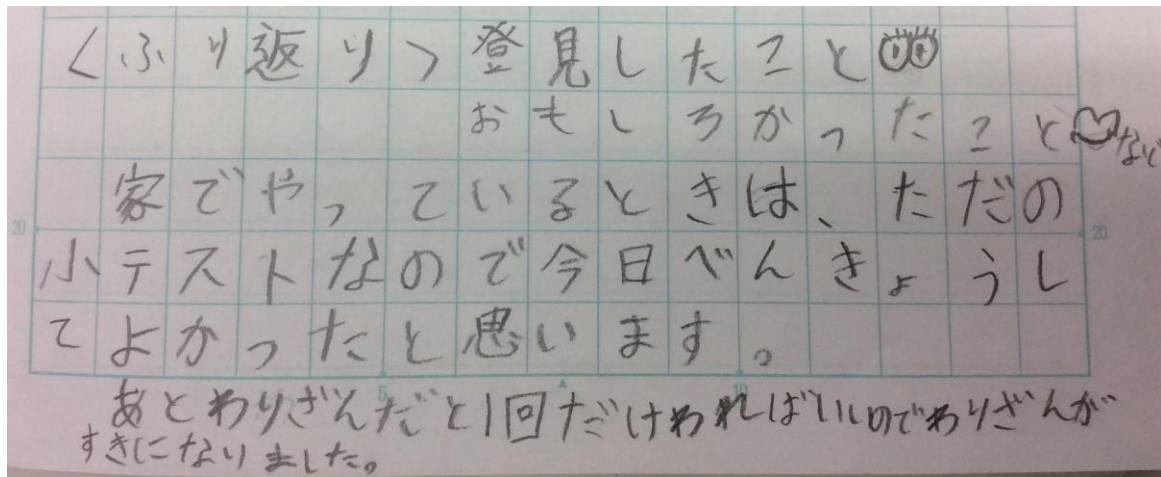 <ふり返り>登見したこと
おもしろかったことなど
家でやっているときは、ただの
小テストなので今日べんきょうし
てよかったと思います。
あとわりざんだと1回だけわればいいのでわりざんが
すきになりました。
20
20
5
10